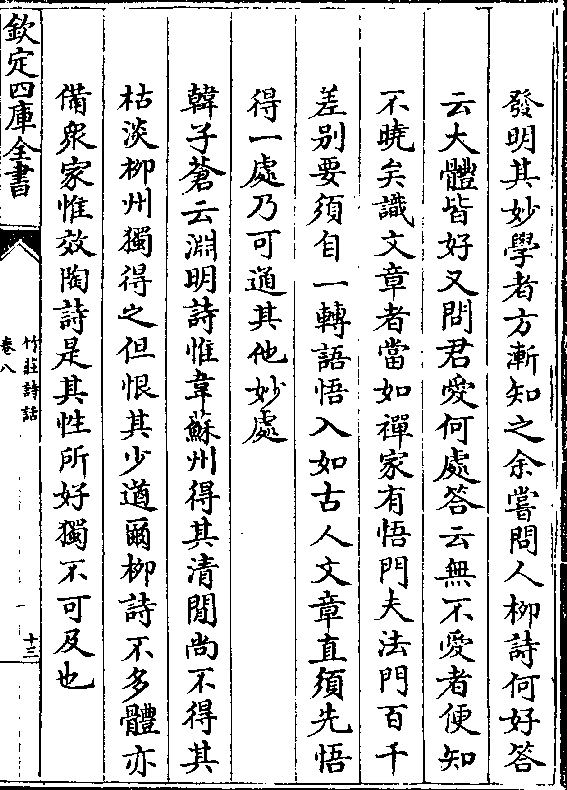 發明其妙學者方漸知之余嘗問人柳詩何好答
云大體皆好又問君愛何處答云無不愛者便知
不曉矣識文章者當如禪家有悟門夫法門百千
差别要須自一轉語悟入如古人文章直須先悟
得一處乃可通其他妙處
韓子蒼云淵明詩惟韋蘇州得其清閒尚不得其
枯淡柳州獨得之但恨其少遒爾柳詩不多體亦
備衆家惟效陶詩是其性所好獨不可及也
欽定四庫全書
竹莊詩話
卷八
十三